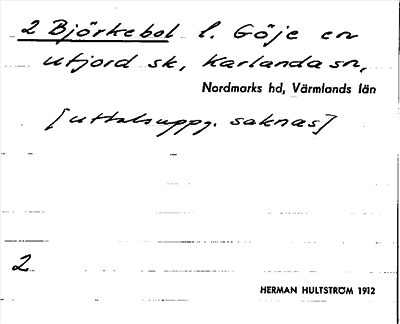 2 Björkebol l. Göje en
utjord sk, Karlanda sn,
Nordmarks hd, Värmlands län
[uttalsuppg. saknas]
2
HERMAN HULTSTRÖM 1912